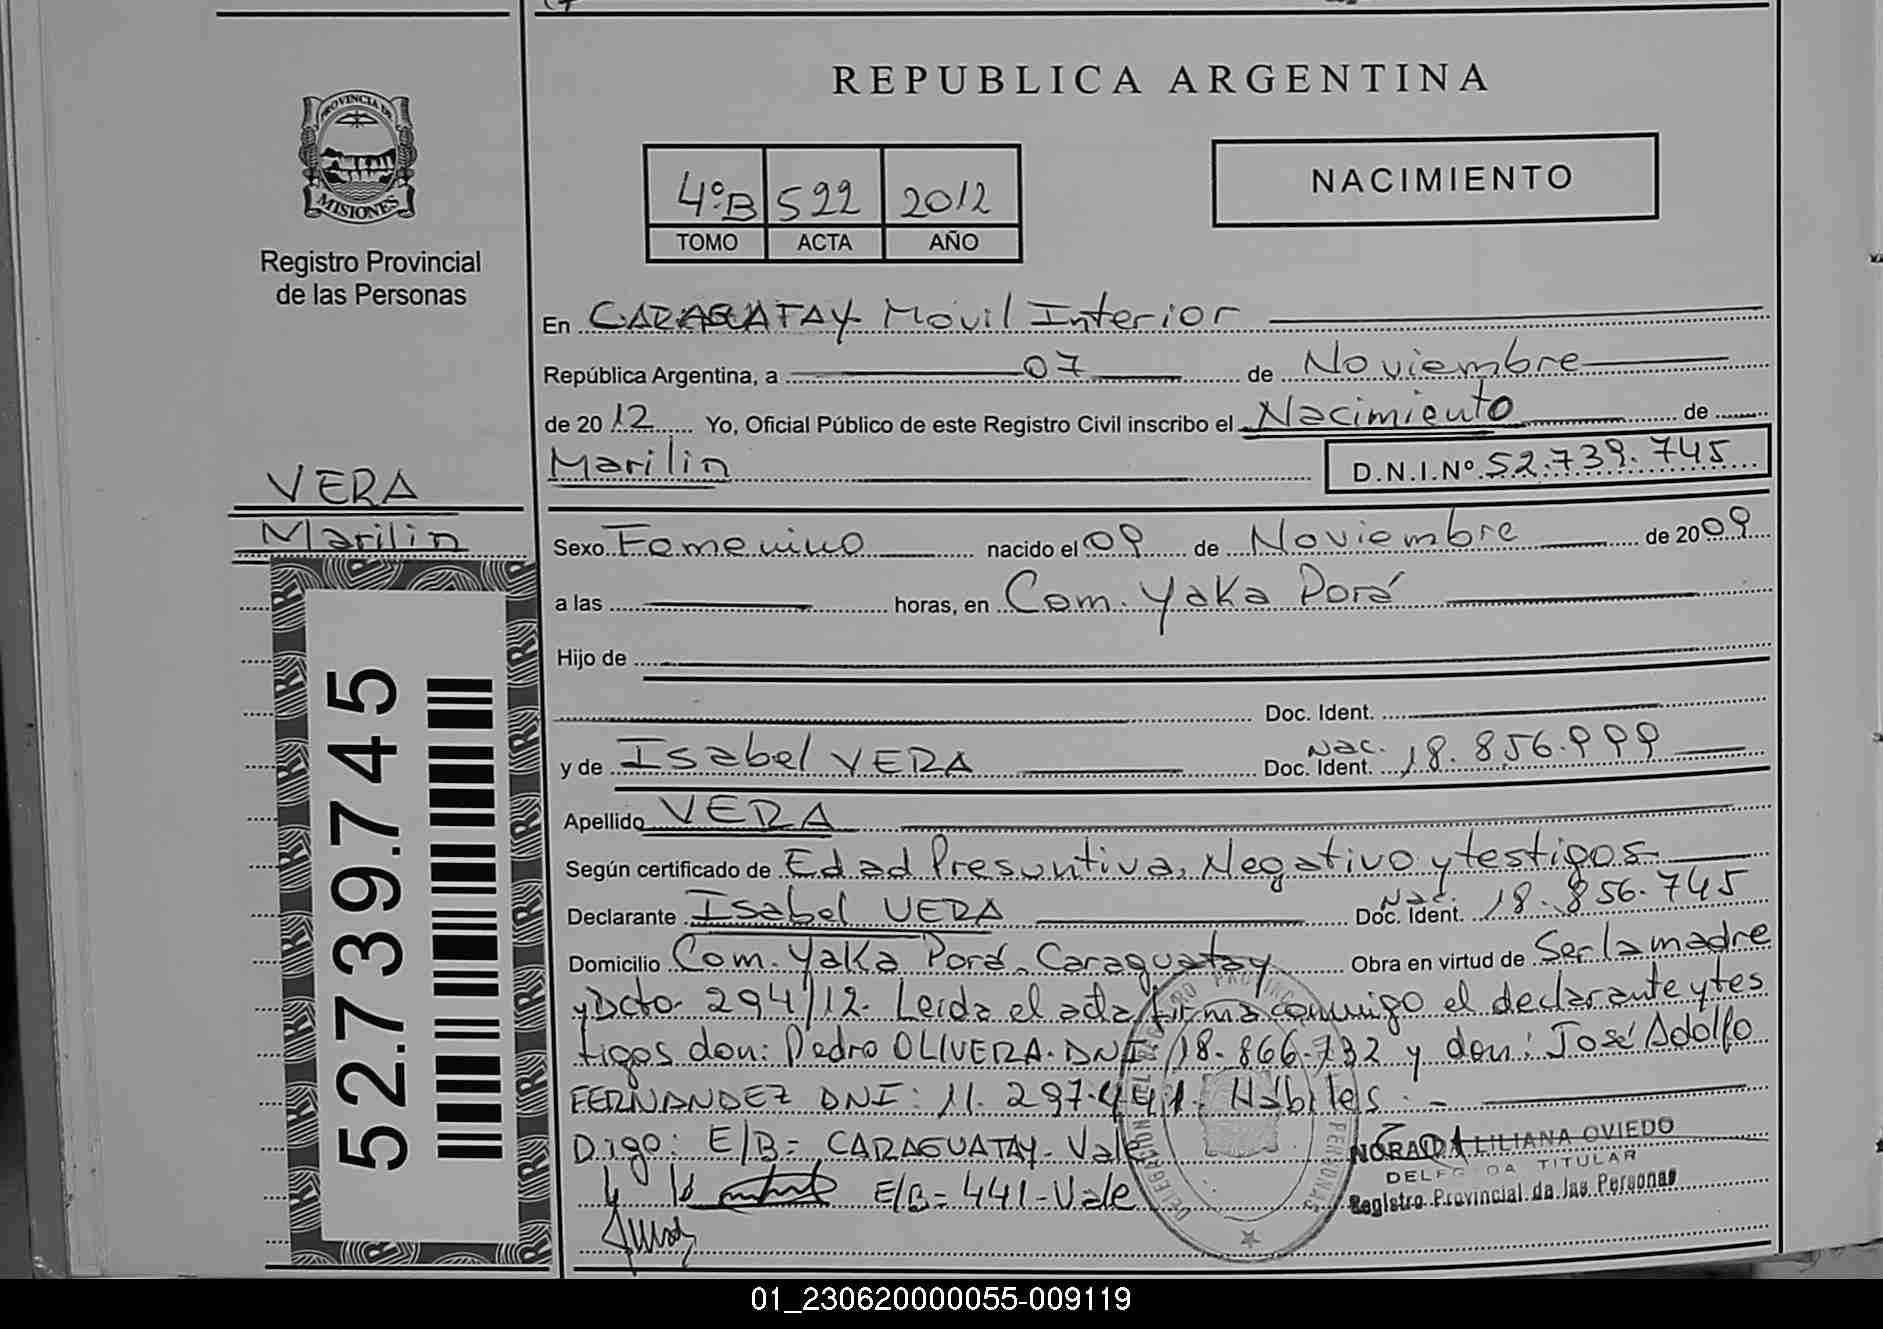 REPUBLICA ARGENTINA
PROVINCIA DE
MISIONES
Registro Provincial
de las Personas
4ºB 522 2012
TOMO ACTA AÑO
NACIMIENTO
En CARAGUATAY Movil Interior
República Argentina, a 07 de Noviembre
de 2012 Yo, Oficial Público de este Registro Civil inscribo el Nacimiento de
Marilin D.N.I.Nº 52.739.745
VERA
Marilin
52.739.745
Sexo Femenino nacido el 09 de Noviembre de 2009
a las horas, en Com. Yaka Porá
Hijo de
Doc. Ident.
y de Isabel VERA Doc. Ident. Nac. 18.856.999
Apellido VERA
Según certificado de Edad Presuntiva, Negativo y testigos
Declarante Isabel VERA Doc. Ident. Nac. 18.856.745
Domicilio Com. Yaka Porá. Caraguatay Obra en virtud de Ser la madre
y Dcto. 294/12. Leida el acta firma conmigo el declarante y tes
tigos don: Pedro OLIVERA. DNI 18.866.732 y don: José Adolfo
FERNANDEZ DNI: 11.297.441. Hábiles.-
Digo: E/B= CARAGUATAY. Vale
E/B= 441-Vale
NORAIDA LILIANA OVIEDO
DELEGADA TITULAR
Registro Provincial de las Personas
01_230620000055-009119